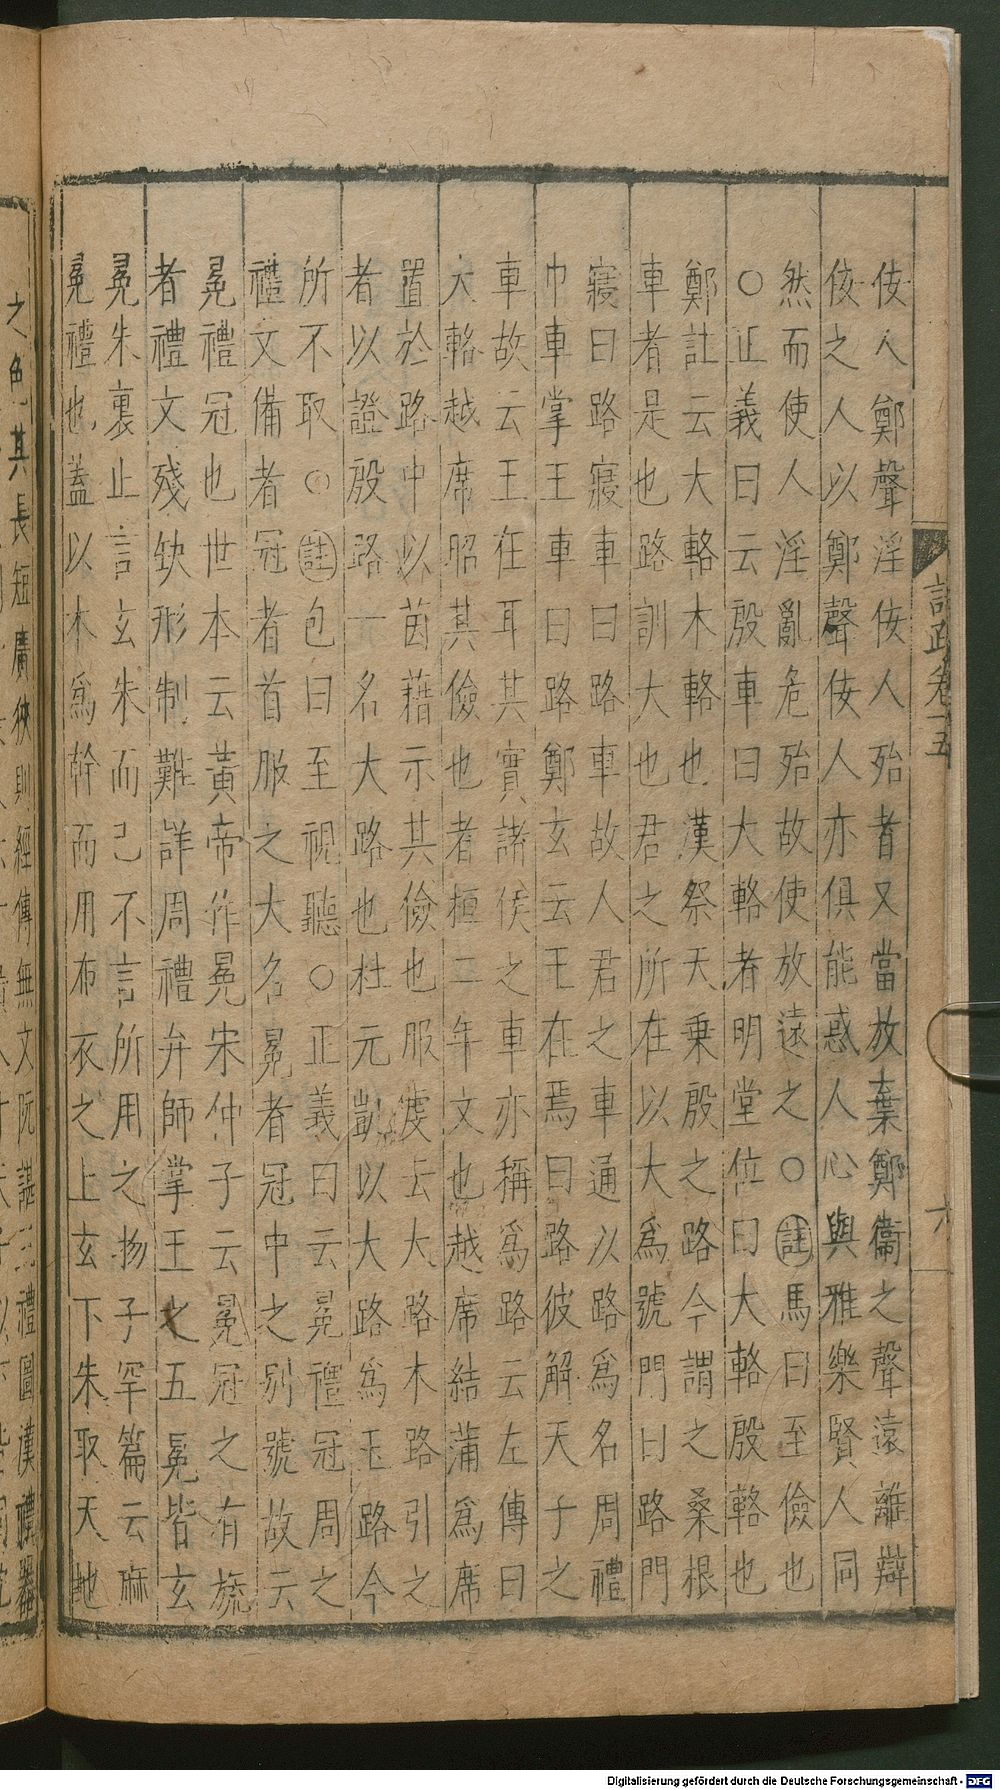 佞人鄭聲淫佞人殆者又當放棄鄭衞之聲遠離辯
佞之人以鄭聲佞人亦俱能惑人心與雅樂賢人同
然而使人淫亂危殆故使放遠之○註馬曰至儉也
○正義曰云殷車曰大輅者明堂位曰大輅殷輅也
鄭註云大輅木輅也漢祭天乗殷之路今謂之桑根
車者是也路訓大也君之所在以大爲號門曰路門
寢曰路寢車曰路車故人君之車通以路爲名周禮
巾車掌王車曰路鄭玄云王在焉曰路彼解天子之
車故云王在耳其實諸侯之車亦稱爲路云左傳曰
大輅越席昭其儉也者桓二年文也越席結蒲爲席
置於路中以茵藉示其儉也服䖍云大路木路引之
者以證殷路一名大路也杜元凱以大路爲玉路今
所不取○註包曰至視聽○正義曰云冕禮冠周之
禮文備者冠者首服之大名冕者冠中之别號故云
冕禮冠也世本云黃帝作冕宋仲子云冕冠之有旒
者禮文殘缺形制難詳周禮弁師掌王之五冕皆玄
冕朱裏止言玄朱而已不言所用之物子罕篇云麻
冕禮也蓋以木爲幹而用布衣之上玄下朱取天地
註疏卷十五
六
之色其長短廣狹則經傳無文阮諶三禮圖漢禮器
Digitalisierung gefördert durch die Deutsche Forschungsgemeinschaft - DFG